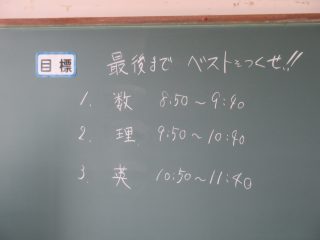 目標 最後まで ベストをつくせ!!
1. 数 8:50～9:40
2. 理 9:50～10:40
3. 英 10:50～11:40